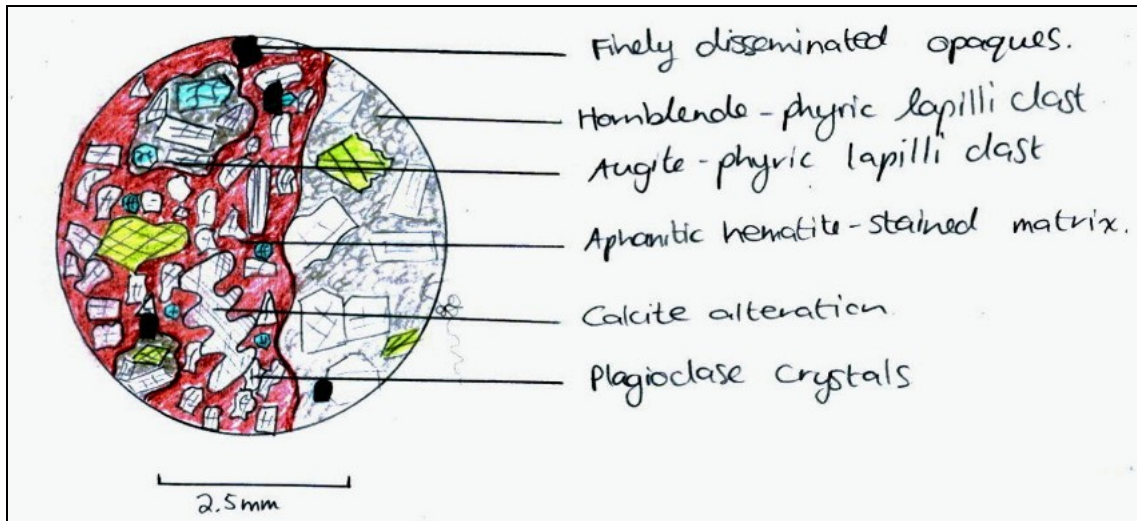 Finely disseminated opaques.
Hornblende-phyric lapilli clast
Augite-phyric lapilli clast
Aphanitic hematite-stained matrix.
Calcite alteration
Plagioclase crystals
2.5mm